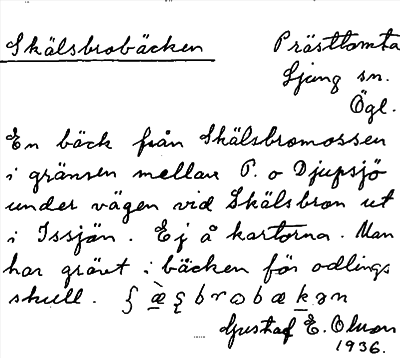 Skälsbrobäcken Prästtomta
Ljung sn.
Ögl.
En bäck från Skälsbromossen
i gränsen mellan P. o Djupsjö
under vägen vid Skälsbron ut
i Issjön. Ej å kartorna. Man
har grävt i bäcken för odlings
skull.
Gustaf E. Olson
1936.